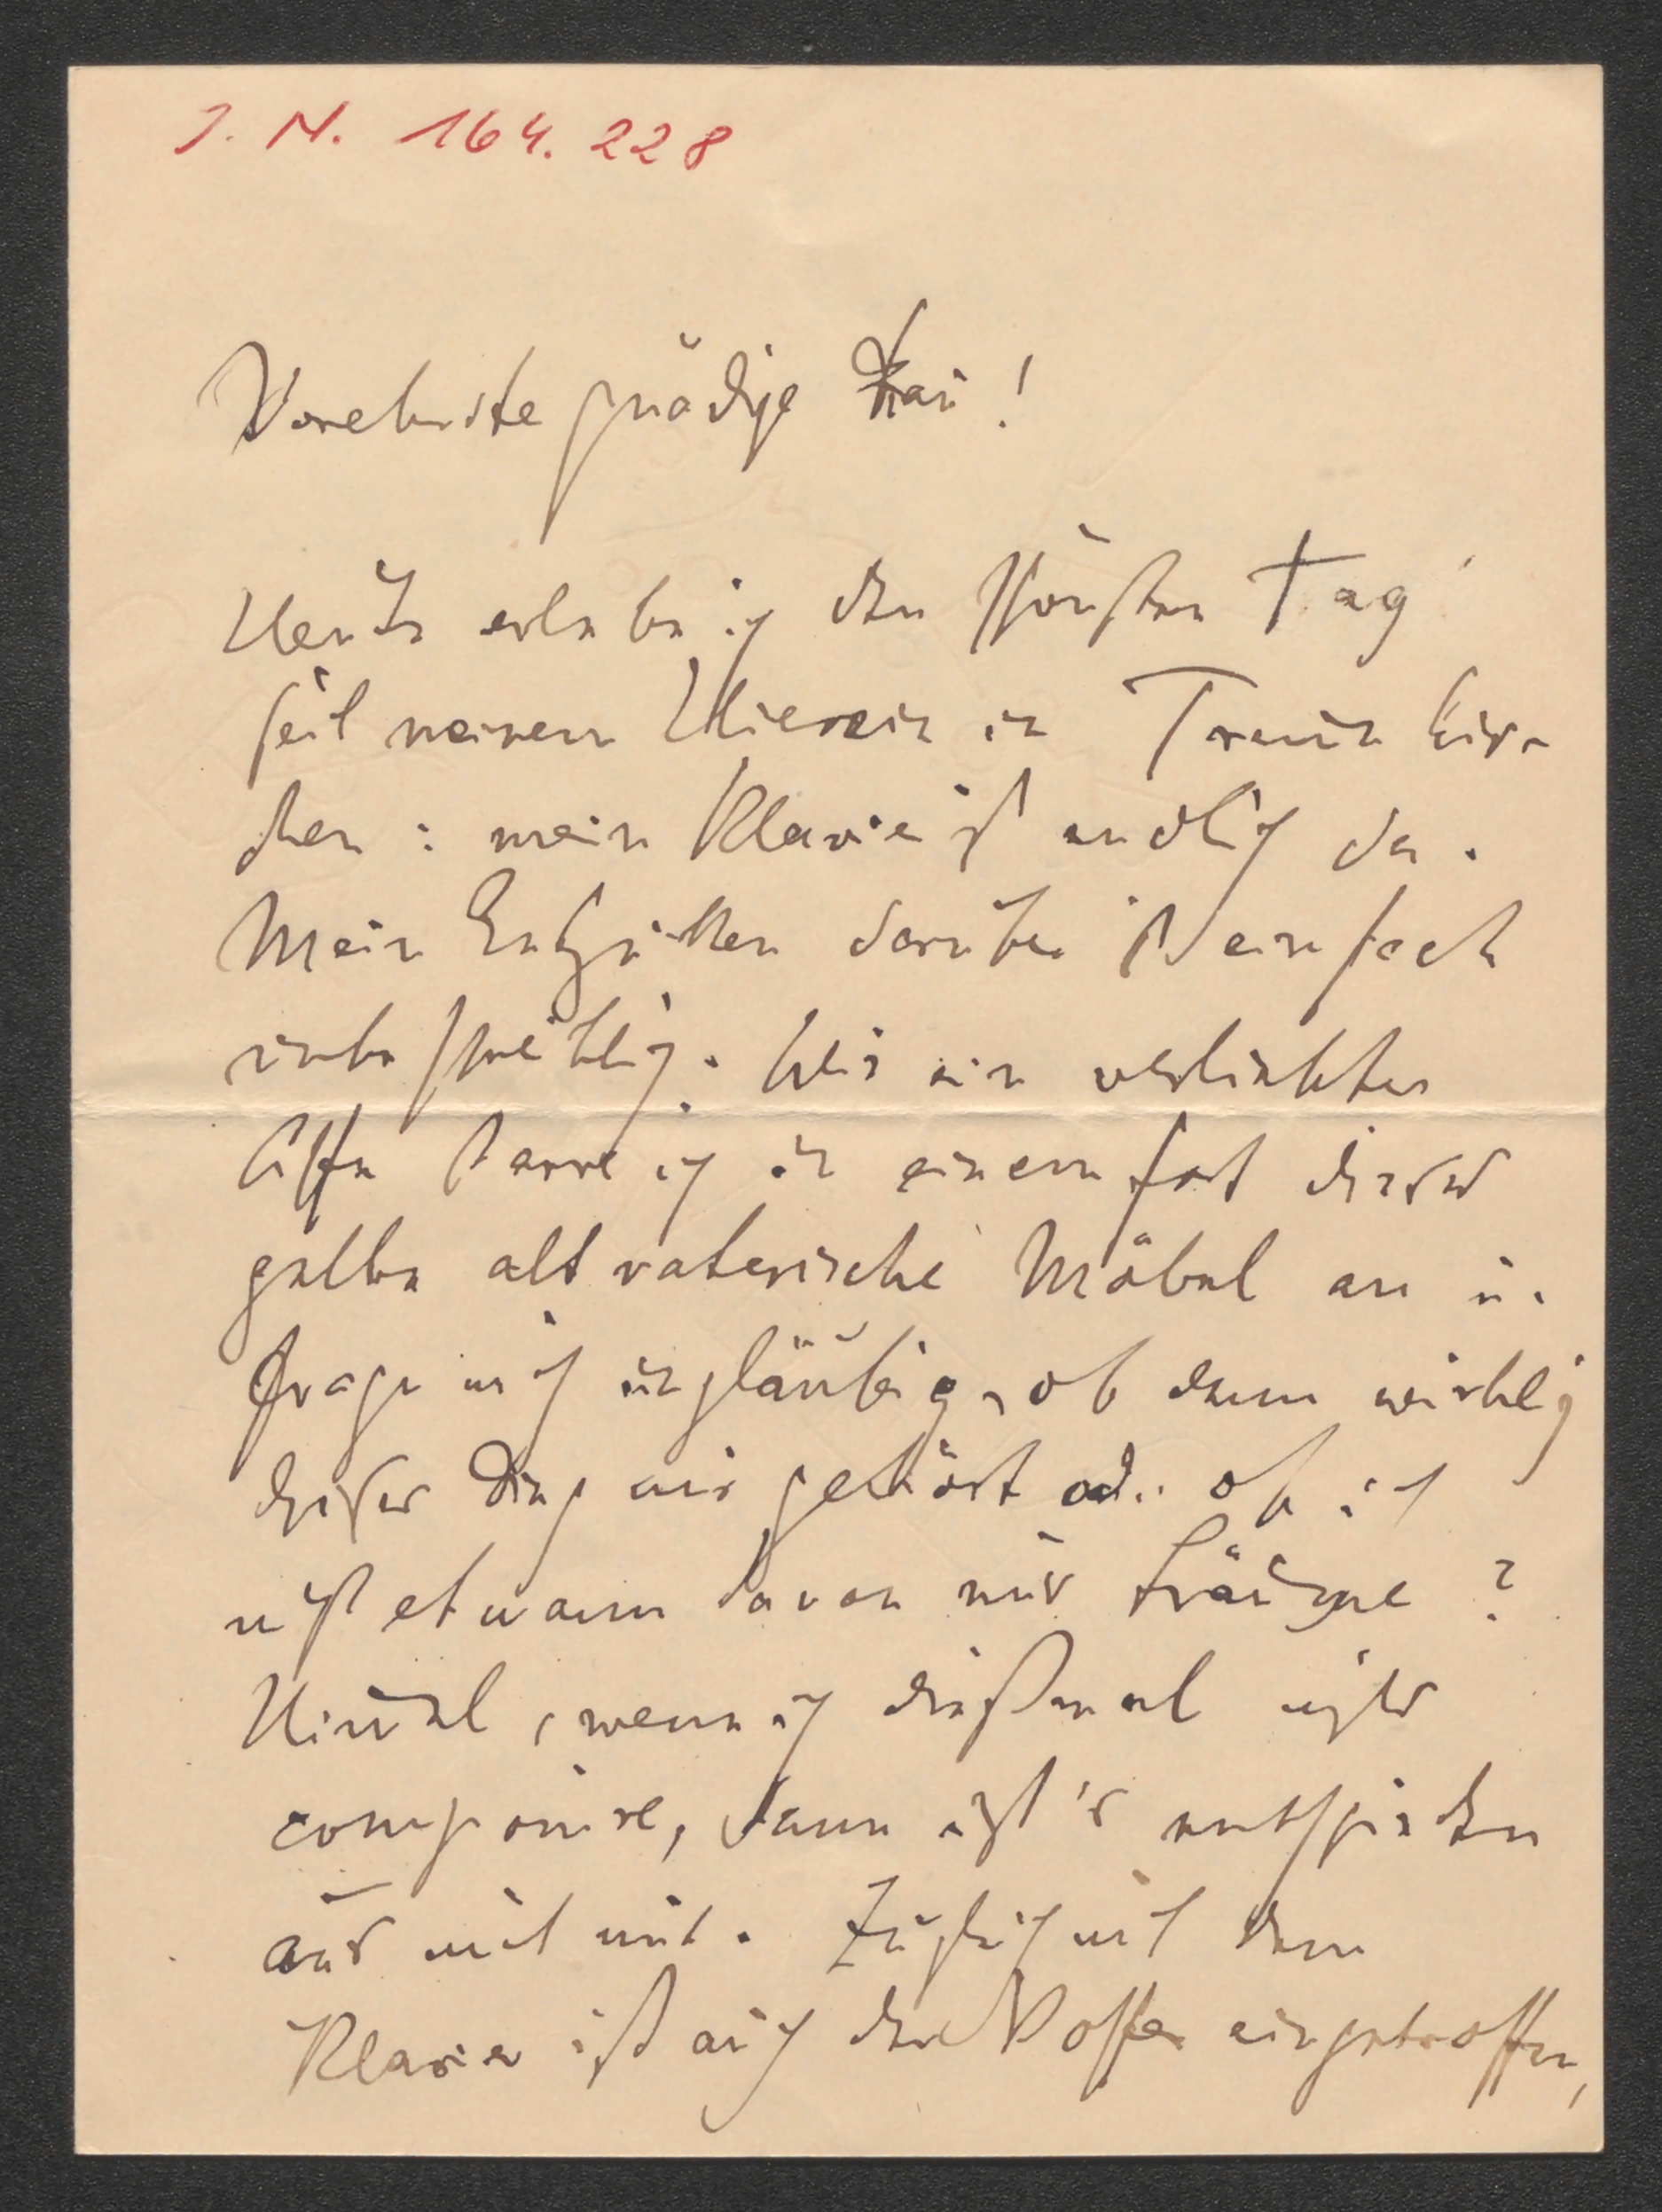 I. N. 164.228
Verehrteste gnädige Frau!
Heute erlebe ich den schönsten Tag
seit meinem Hiersein in Traunkir-
chen: mein Klavier ist endlich da.
Mein Entzücken darüber ist einfach
unbeschreiblich. Wie ein verliebter
Affe starre ich in einem fort dieses
gelbe altvaterische Möbel an u.
frage mich ungläubig, ob denn wirklich
dieses Ding mir gehört od. ob ich
nicht etwann davon nur träume?
Himmel, wenn ich dießmal nichts
componire, dann ist's entschieden
aus mit mir. Zugleich mit dem
Klavier ist auch der Koffer eingetroffen,